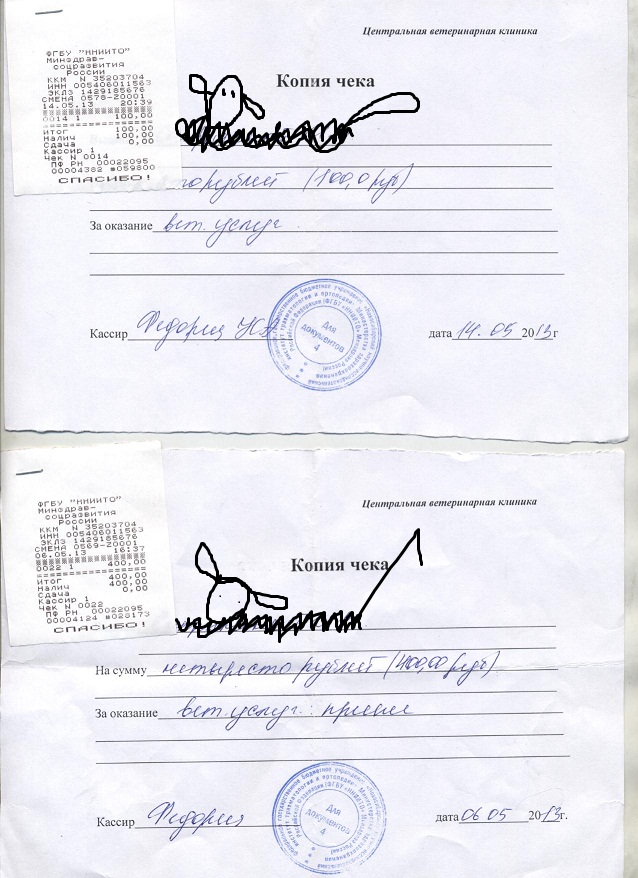 Центральная ветеринарная клиника
ФГБУ "ННИИТО"
Минздрав-
соцразвития
России
ККМ N 35203704
ИНН 005406011563
ЭКЛЗ 1429185676
СМЕНА 0578-20001
14.05.13 20:39
0014 1 100,00
ИТОГ 100,00
Налич 100,00
Сдача 0,00
Кассир 1
Чек N 0014
ПФ РН 00022095
00004382 #059800
СПАСИБО!
Копия чека
рублей (100,0 руб)
За оказание вет. услуг.
Для
документов
4
Кассир Федория дата 14.05 2013г
Центральная ветеринарная клиника
ФГБУ "ННИИТО"
Минздрав-
соцразвития
России
ККМ N 35203704
ИНН 005406011563
ЭКЛЗ 1429185676
СМЕНА 0569-20001
06.05.13 16:37
0022 1 400,00
ИТОГ 400,00
Налич 400,00
Сдача 0,00
Кассир 1
Чек N 0022
ПФ РН 00022095
00004124 #028173
СПАСИБО!
Копия чека
На сумму четыресто рублей (400,00 руб)
За оказание вет. услуг: прием
Для
документов
4
Кассир Федория дата 06 05 2013г.